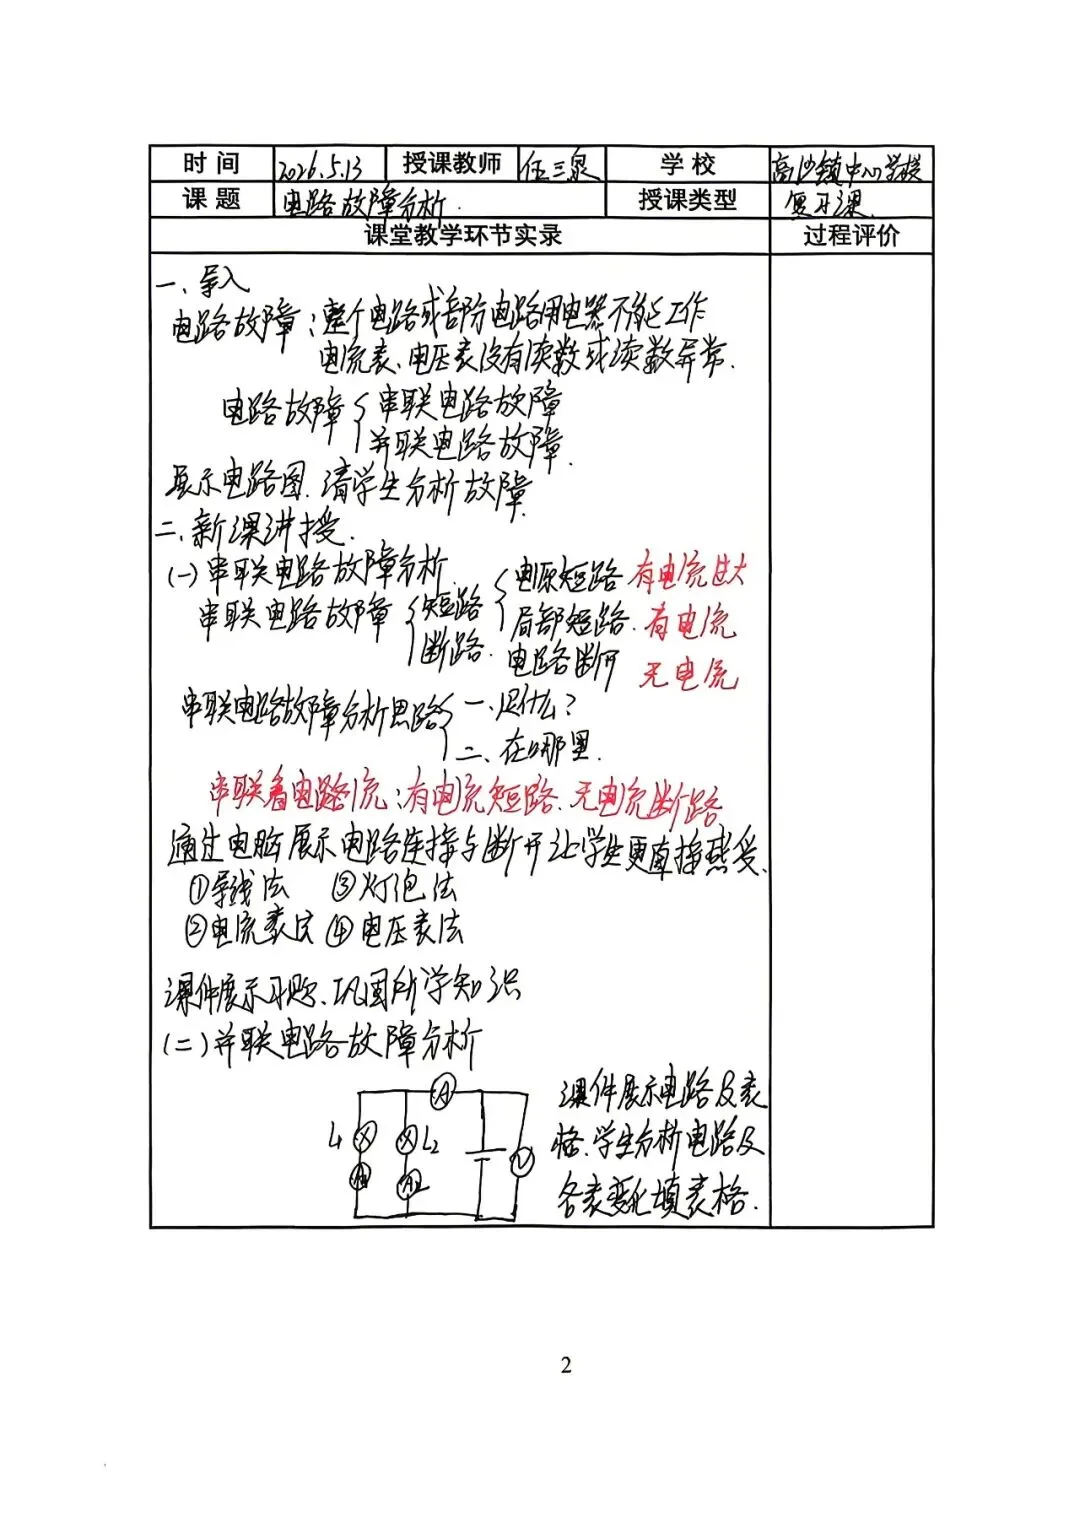 时间 2026.5.13 授课教师 任三泉 学校 高沙镇中心学校
课题 电路故障分析. 授课类型 复习课.
课堂教学环节实录 过程评价
一、导入
电路故障:整个电路或部分电路用电器不能工作
电流表、电压表没有读数或读数异常.
电路故障{串联电路故障
并联电路故障.
展示电路图.请学生分析故障.
二、新课讲授.
(一)串联电路故障分析.
串联电路故障{短路{电源短路 有电流过大
局部短路.有电流
断路.电路断开 无电流
串联电路故障分析思路{一、是什么?
二、在哪里.
串联看电路电流:有电流短路.无电流断路.
通过电脑展示电路连接与断开让学生更直接感受.
①导线法 ③灯泡法
②电流表法 ④电压表法
课件展示习题、巩固所学知识
(二)并联电路故障分析
A
L1 L2
A1 A2 V
课件展示电路及表
格.学生分析电路及
各表变化填表格.
2